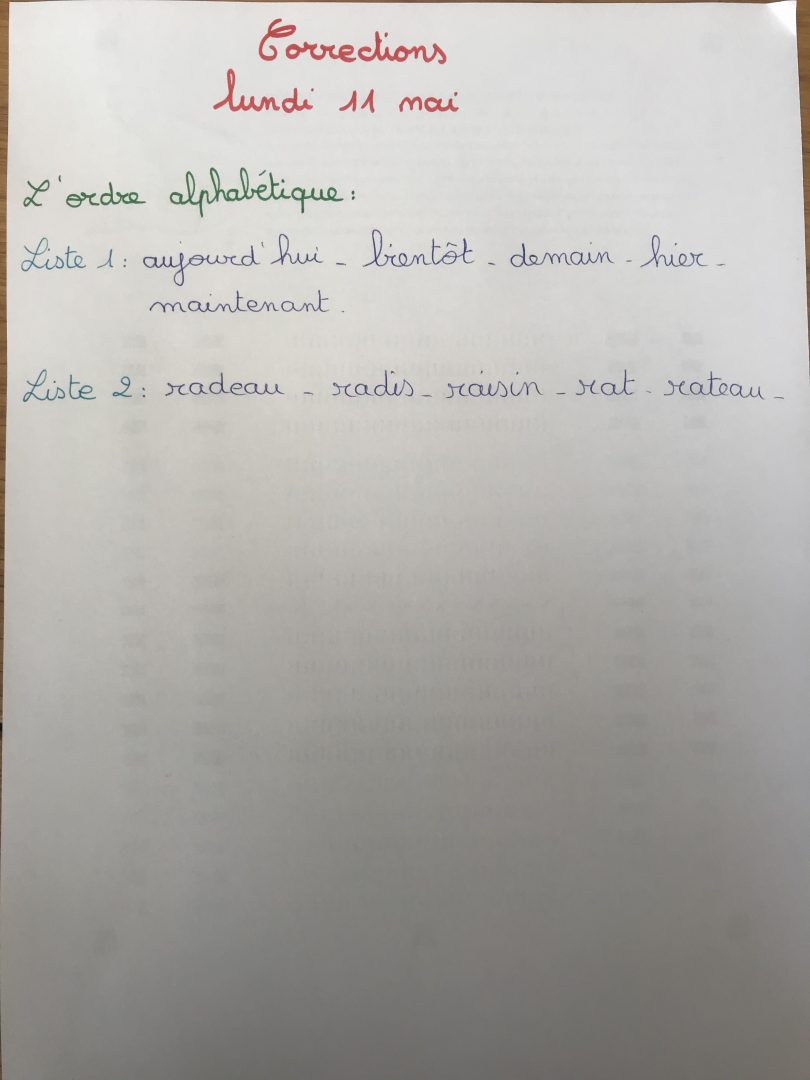 Corrections
lundi 11 mai
L'ordre alphabétique :
Liste 1 : aujourd'hui - bientôt - demain - hier -
maintenant.
Liste 2 : radeau - radis - raisin - rat - rateau -